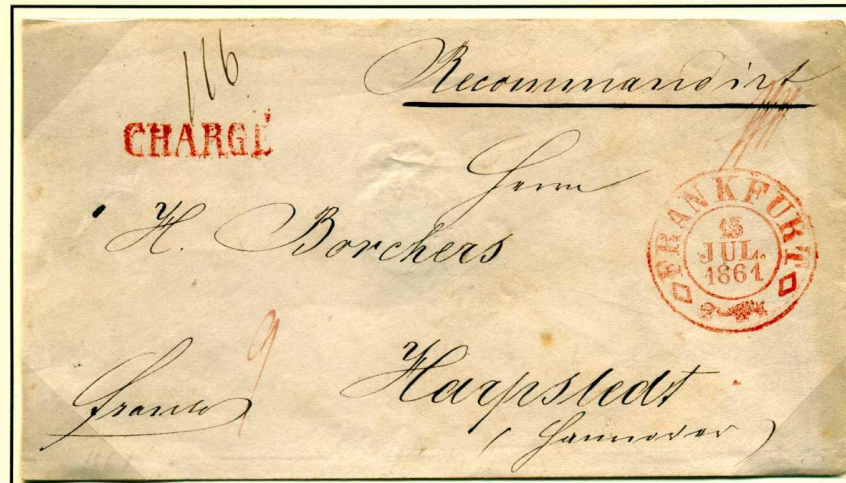 116
Recommandirt
CHARGÉ
Herrn
H. Borchers
FRANKFURT
15
JUL.
1861
9
Harpstedt
franco
(Hannover)